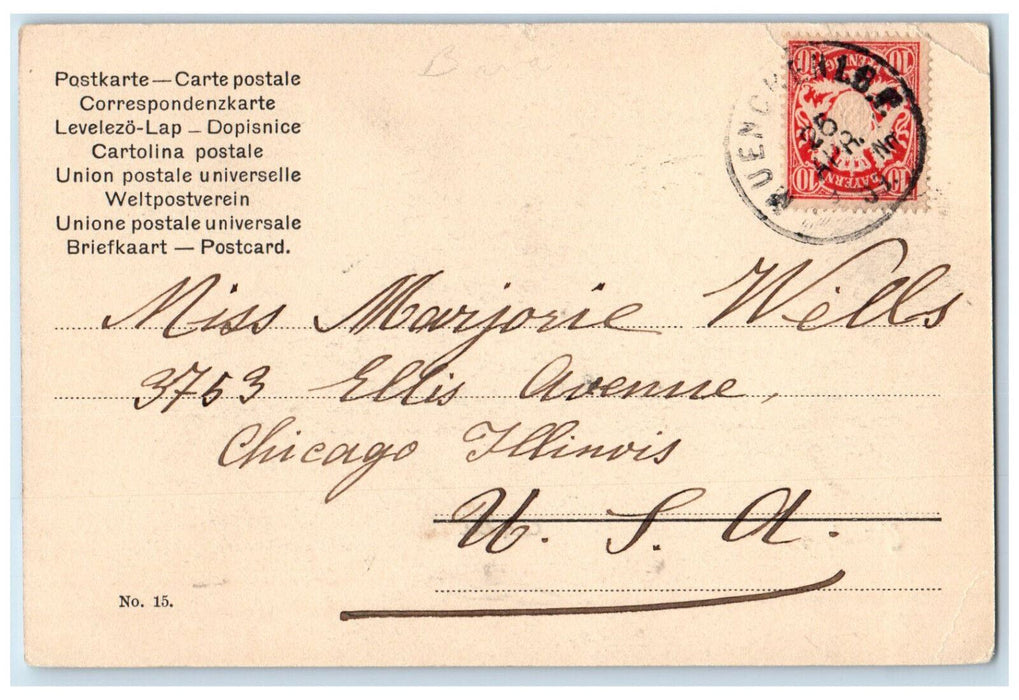 Postkarte — Carte postale
Correspondenzkarte
Levelező-Lap — Dopisnice
Cartolina postale
Union postale universelle
Weltpostverein
Unione postale universale
Briefkaart — Postcard.
10 10
MUENCHEN
BAYERN
10 10
Miss Marjorie Wells
3753 Ellis Avenue,
Chicago Illinois
U. S. A.
No. 15.